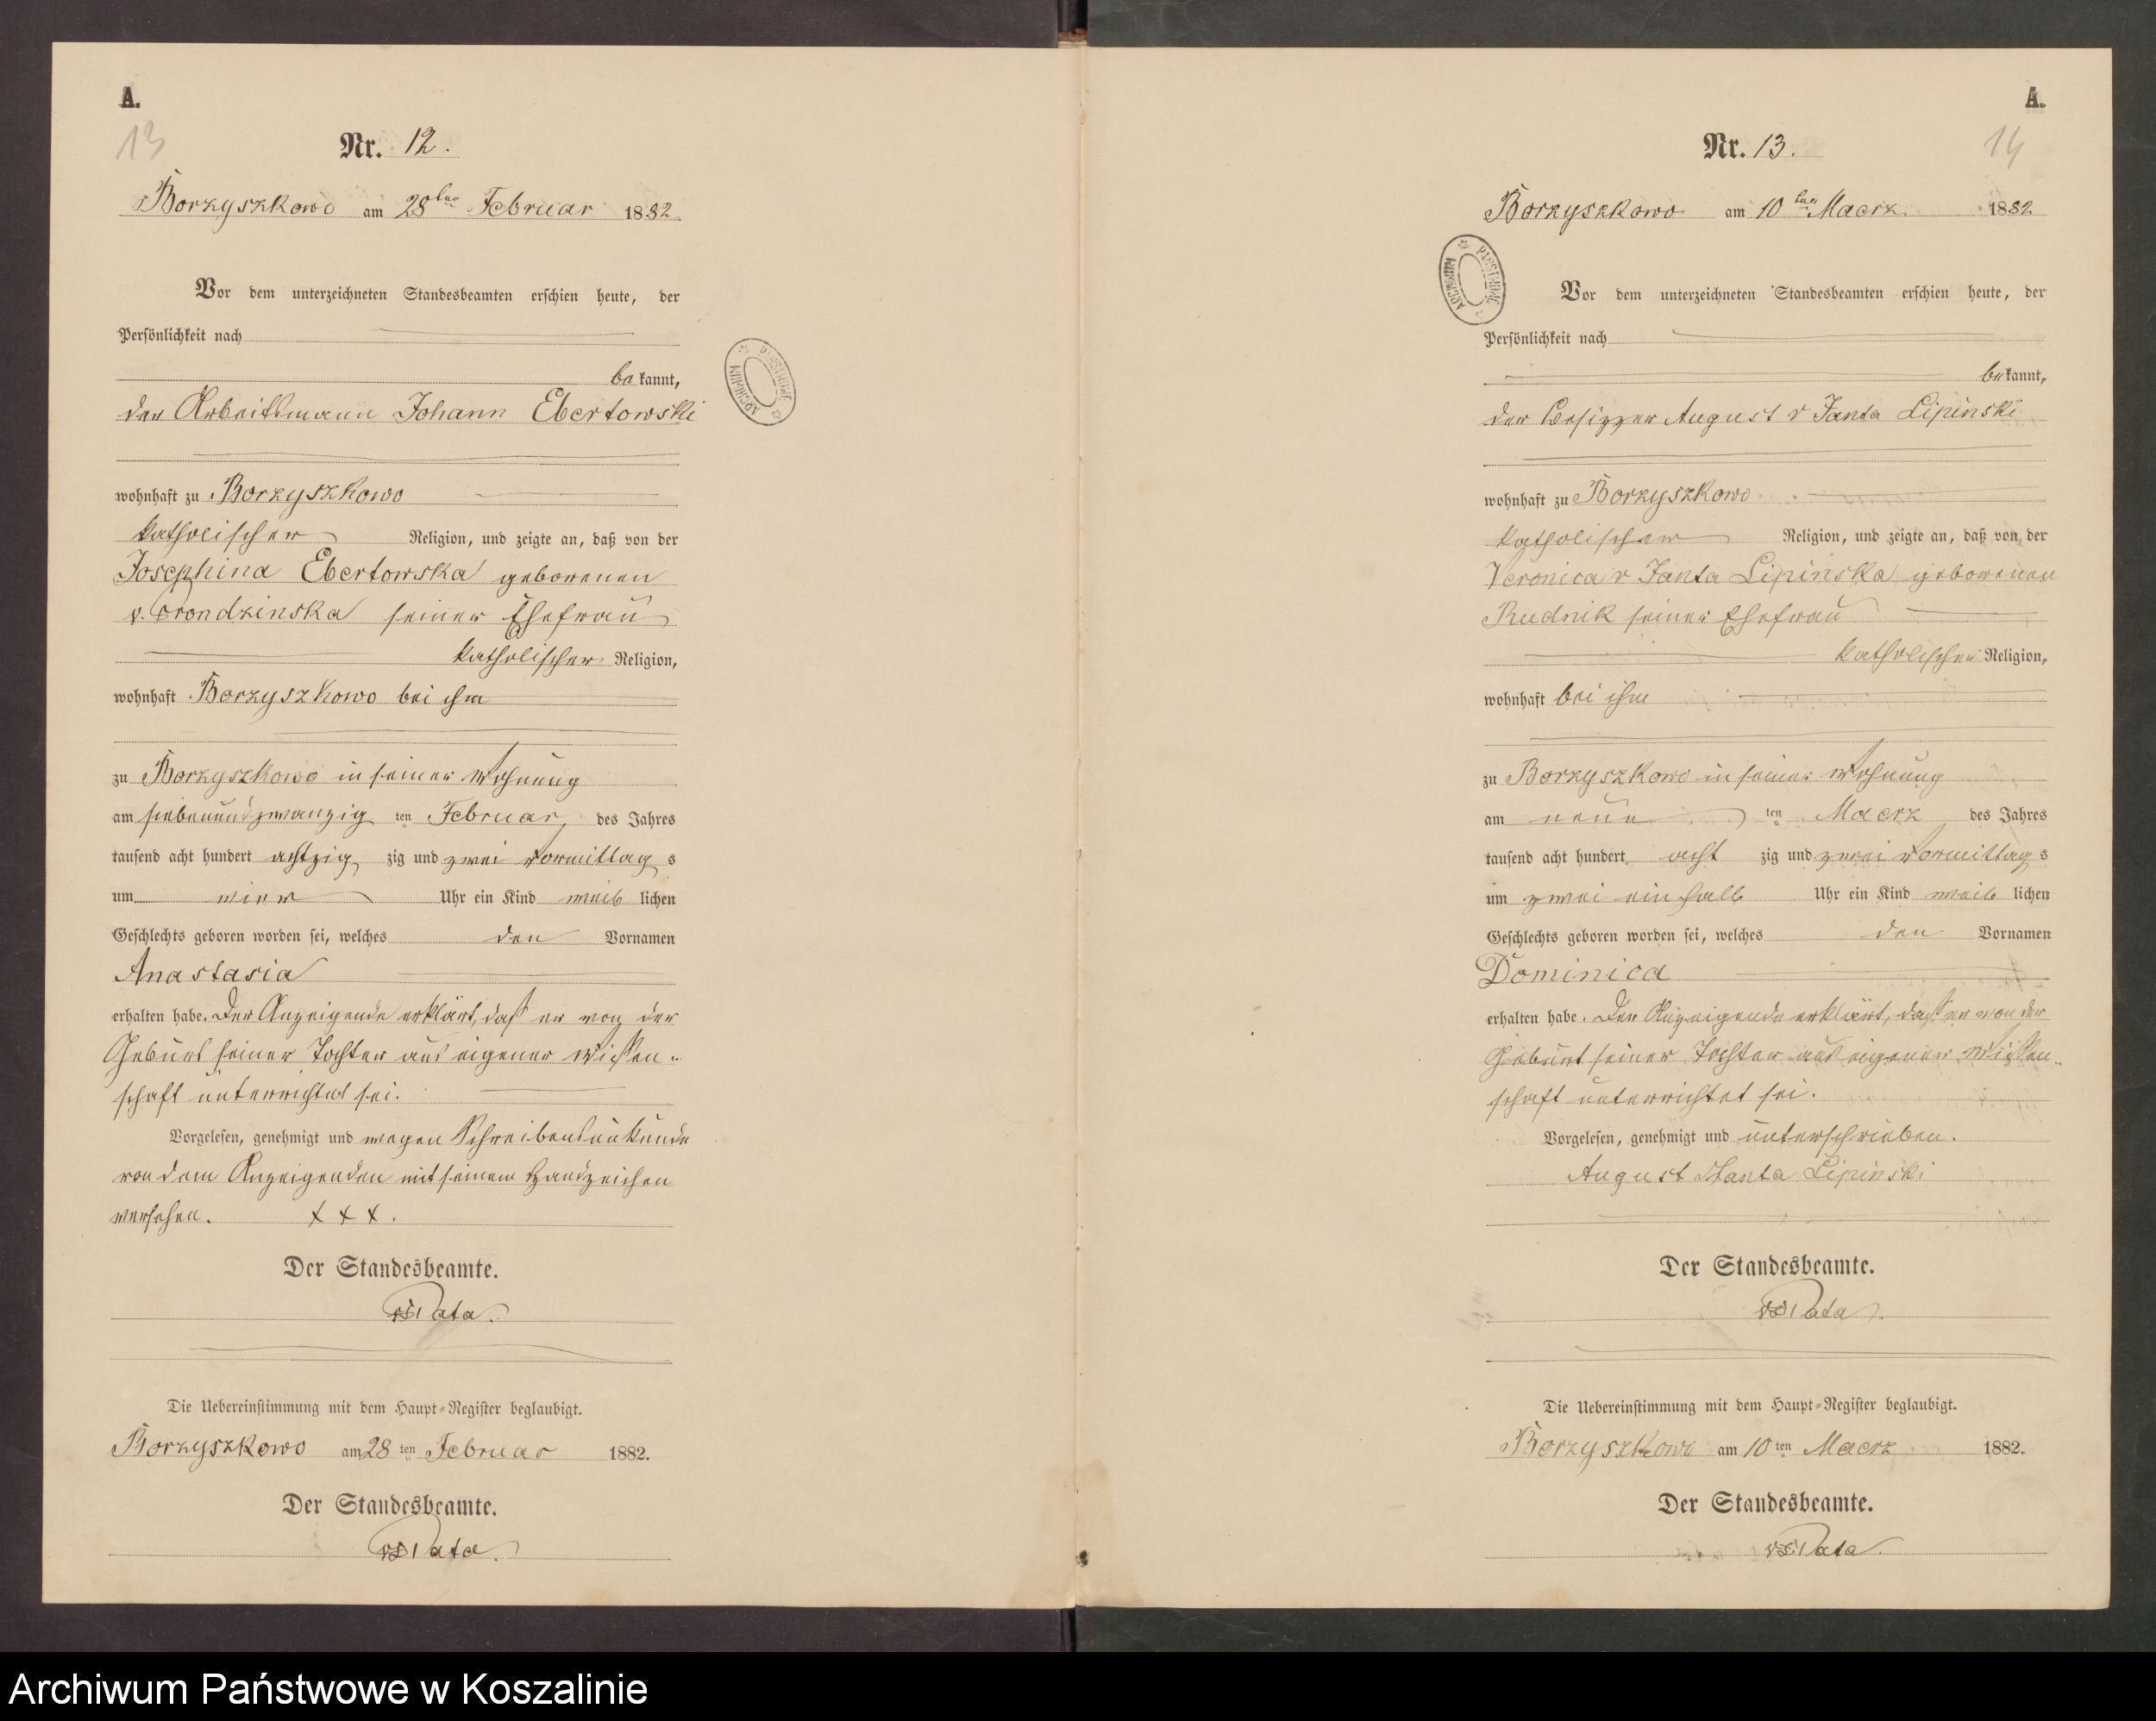 A.
13
Nr. 12.
Borzyszkowo am 28ten Februar 1882
Vor dem unterzeichneten Standesbeamten erschien heute, der
Persönlichkeit nach
bekannt,
der Arbeitsmann Johann Ebertowski
wohnhaft zu Borzyszkowo
katholischer Religion, und zeigte an, daß von der
Josephina Ebertowska geborenen
v. Prondzinska seiner Ehefrau
katholischer Religion,
wohnhaft Borzyszkowo bei ihm
zu Borzyszkowo in seiner Wohnung
am siebenundzwanzig ten Februar des Jahres
tausend acht hundert achtzig zig und zwei Vormittags
um vier Uhr ein Kind weiblichen
Geschlechts geboren worden sei, welches den Vornamen
Anastasia
erhalten habe. Der Anzeigende erklärt, daß er von der
Geburt seiner Tochter aus eigener Wissen-
schaft unterrichtet sei.
Vorgelesen, genehmigt und wegen Schreibensunkunde
von dem Anzeigenden mit seinem Handzeichen
versehen. XXX.
Der Standesbeamte.
Pata.
Die Uebereinstimmung mit dem Haupt-Register beglaubigt.
Borzyszkowo am 28ten Februar 1882.
Der Standesbeamte.
Pata.
ARCHIWUM PAŃSTWOWE
A.
14
Nr. 13.
Borzyszkowo am 10ten Maerz 1882
Vor dem unterzeichneten Standesbeamten erschien heute, der
Persönlichkeit nach
bekannt,
der Besitzer August v Janta Lipinski
wohnhaft zu Borzyszkowo
katholischer Religion, und zeigte an, daß von der
Veronica v Janta Lipinska geborenen
Rudnik seiner Ehefrau
katholischer Religion,
wohnhaft bei ihm
zu Borzyszkowo in seiner Wohnung
am neun ten Maerz des Jahres
tausend acht hundert acht zig und zwei Vormittags
um zwei ein halb Uhr ein Kind weiblichen
Geschlechts geboren worden sei, welches den Vornamen
Dominica
erhalten habe. Der Anzeigende erklärt, daß er von der
Geburt seiner Tochter aus eigener Wissen-
schaft unterrichtet sei.
Vorgelesen, genehmigt und unterschrieben.
August Janta Lipinski
Der Standesbeamte.
Pata.
Die Uebereinstimmung mit dem Haupt-Register beglaubigt.
Borzyszkowo am 10ten Maerz 1882.
Der Standesbeamte.
Pata.
ARCHIWUM PAŃSTWOWE
Archiwum Państwowe w Koszalinie